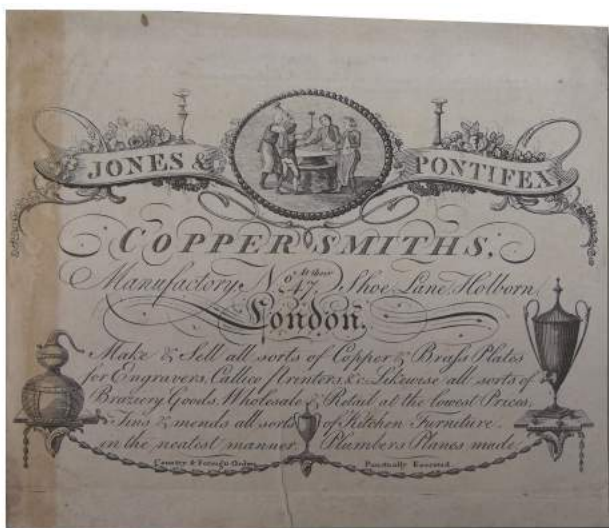 JONES & PONTIFEX,
COPPER SMITHS,
At their
Manufactory, No. 47, Shoe Lane Holborn
London,
Make & Sell all sorts of Copper & Braſs Plates
for Engravers, Callico Printers, &c. Likewise all sorts of
Braziery Goods, Wholesale & Retail at the lowest Prices,
Tins & mends all sorts of Kitchen Furniture
in the neatest manner Plumbers Planes made
Country & Foreign Orders Punctually Executed